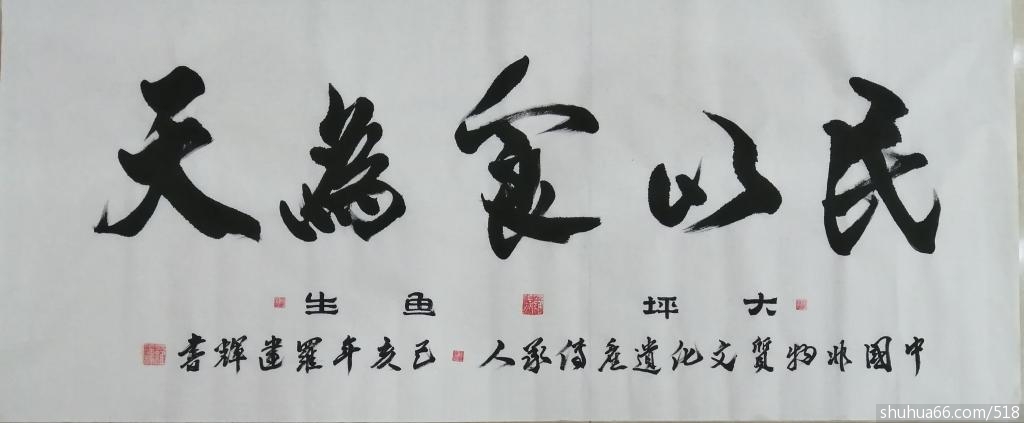 民以食為天
大坪 鱼生
中國非物質文化遺產傳承人 己亥年羅建輝書
shuhua66.com/518